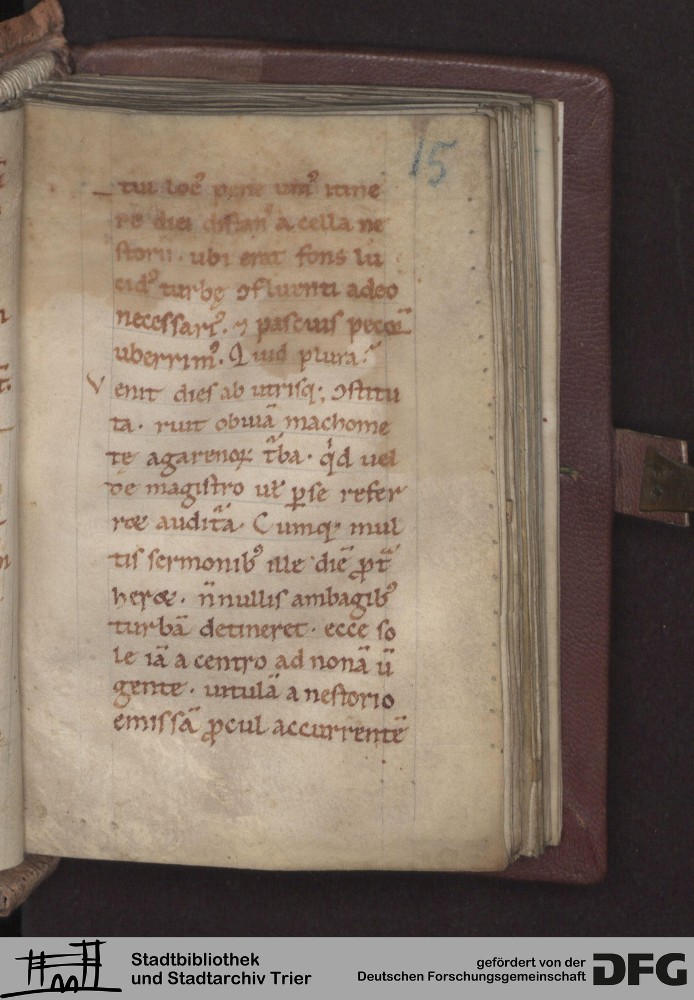 15
tui loc᷒ pene uni᷒ itine
re diei distan᷒ a cella ne
storii · ubi erat fons lu
cid᷒ turbę ꝯfluenti adeo
necessari᷒ · ⁊ pascuis pecoꝝ
uberrim᷒. Quid plura?
Venit dies ab utrisq; ꝯstitu
ta · ruit obuiā machome
te agarenoꝝ t̄ba · q̇d uel
de magistro ut̵ ꝑse refer
ret auditᷓa. Cumq; mul
tis sermonib᷒ ille diē ꝓt᷑
heret · n̄nullis ambagib᷒
turbā detineret · ecce so
le iā a centro ad nonā ū
gente · uitulā a nestorio
emissā ꝓcul accurrentē
Stadtbibliothek
und Stadtarchiv Trier
gefördert von der
Deutschen Forschungsgemeinschaft
DFG